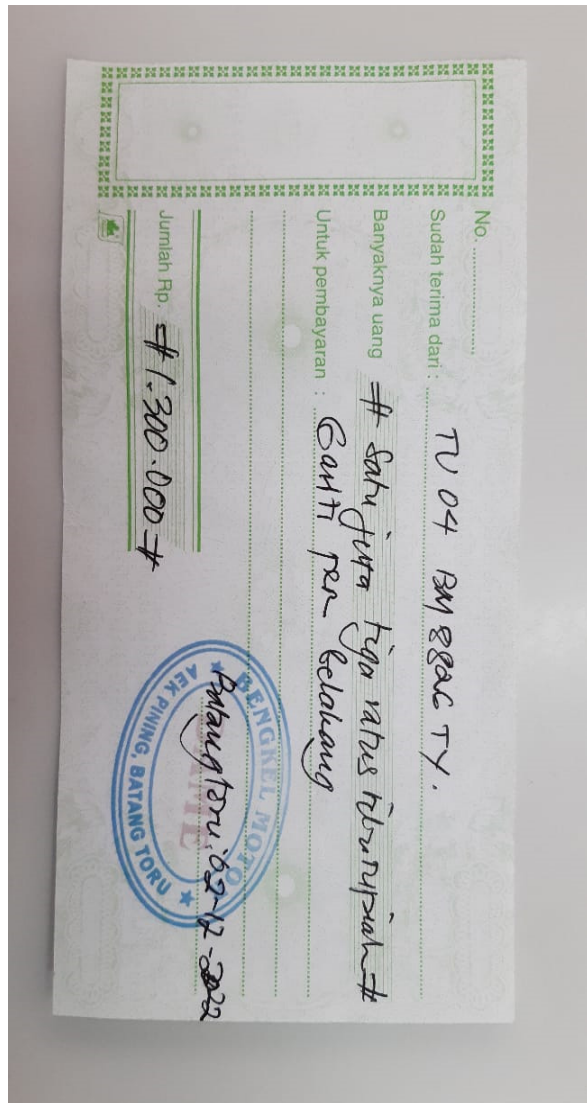 No.
Sudah terima dari : TU 04 BM 8826 TY.
Banyaknya uang # Satu juta tiga ratus ribu rupiah #
Untuk pembayaran : Ganti per belakang
Batangtoru: 02-12-2022
Jumlah Rp. # 1.300.000 #
BENGKEL MOTO
AEK PINING, BATANG TORU